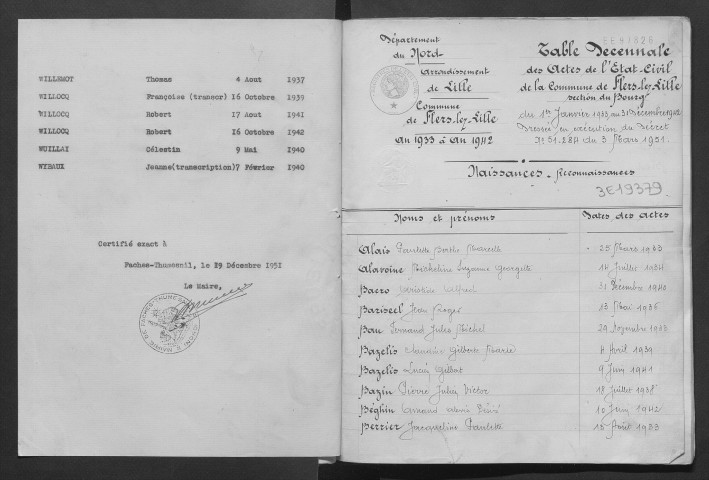 WILLEMOT Thomas 4 Aout 1937
WILLOCQ Françoise (transcr) 16 Octobre 1939
WILLOCQ Robert 17 Aout 1941
WILLOCQ Robert 16 Octobre 1942
WUILLAY Célestin 9 Mai 1940
WYBAUX Jeanne(transcription)7 Février 1940
Certifié exact à
Faches-Thumesnil, le 29 Décembre 1951
Le Maire,
Département
du Nord
Arrondissement
de Lille
Commune
de Flers-lez-Lille
An 1933 à An 1942
Table Decennale
des Actes de l'Etat-Civil
de la Commune de Flers-lez-Lille
section du Bourg
du 1er Janvier 1933 au 31 Décembre 1942
Dressée en exécution du Décret
N° 51.284 du 3 Mars 1951.
Naissances - Reconnaissances
3E19379
Noms et prénoms Dates des actes
Alais Paulette Berthe Marcelle 25 Mars 1933
Alavoine Micheline Suzanne Georgette 14 Juillet 1934
Bacro Christian Alfred 31 Décembre 1940
Bariseel Jean Roger 13 Mai 1936
Bau Fernand Jules Michel 29 Novembre
Bazelis Claudine Gilberte Marie 4 Avril 1939
Bazelis Lucien Gilbert 9 Juin 1941
Bazin Pierre Julien Victor 18 Juillet 1938
Béghin Arnaud 10 Juin 1942
Berrier Jacqueline Paulette 15 Août 1933